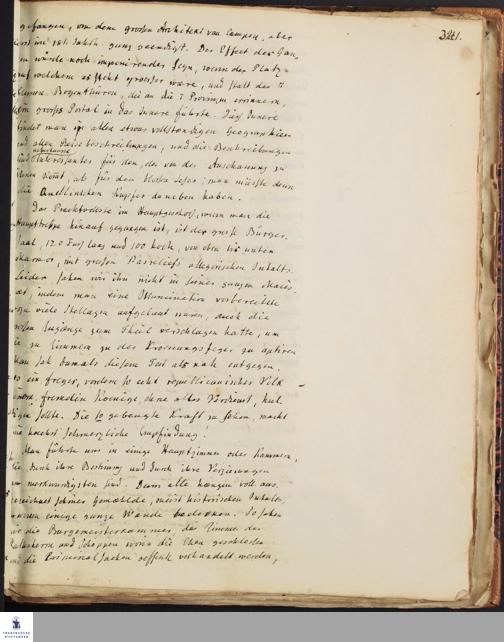 341.
gefangen, von dem großen Architekt van Campen, aber
erst im 18t. Jahrh. ganz geendigt. Der Effect des Gan-
würde noch imponirender seyn, wenn der Platz
auf welchem es steht groesser wäre, und statt der 7
kleinen Bogenthüren, die an die 7 Provinzen erinnern,
ein großes Portal in das Innere führte. Dieß Innere
findet man in allen etwas vollständigen Geographien
und allen Reisebeschreibungen, und die Beschreibungen
sind interessanter für den, der von der Anschauung
kommt, als für den bloßen Leser; man müßte denn
die Kupfer daneben haben.
Das Prachtvollste im Hauptgeschoß, wenn man die
Haupttreppe hinauf gegangen ist, ist der große Bürger-
saal, 120 Fuß lang und 100 hoch, von oben bis unten
Marmor, mit großen Basreliefs allegorischen Inhalts.
Leider sahen wir ihn nicht in seiner ganzen Majes-
tät, indem man eine Illumination vorbereitete
wozu viele Stellagen aufgebaut waren, auch die
großen Eingänge zum Theil verschlagen hatte, um
sie zu Zimmern zu des Kronungsfeyer zu aptiren
Man sah damals diesem Fest als nah entgegen,
ein freyes, vordem so echt republicanisches Volk
einem fremden Koenige, ohne alles Verdienst, hul-
digen sollte. Die so gebeugte Kraft zu sehen, macht
die hoechst schmerzliche Empfindung!
Man führte uns in einige Hauptzimmer oder Kammern,
die durch ihre Bestimmung und durch ihre Verzierungen
am merkwürdigsten sind. Denn alle haengen voll aus-
gezeichnet schöner Gemaehlde, meist historischen Inhalts,
wovon einige ganze Wände bedecken. So sahen
wir die Burgemeisterkammer, das Zimmer der
Rathsherrn und Schöppen worin die Ehen geschlossen
und die Criminalsachen oeffentl. verhandelt werden,
FRANCKESCHE
STIFTUNGEN